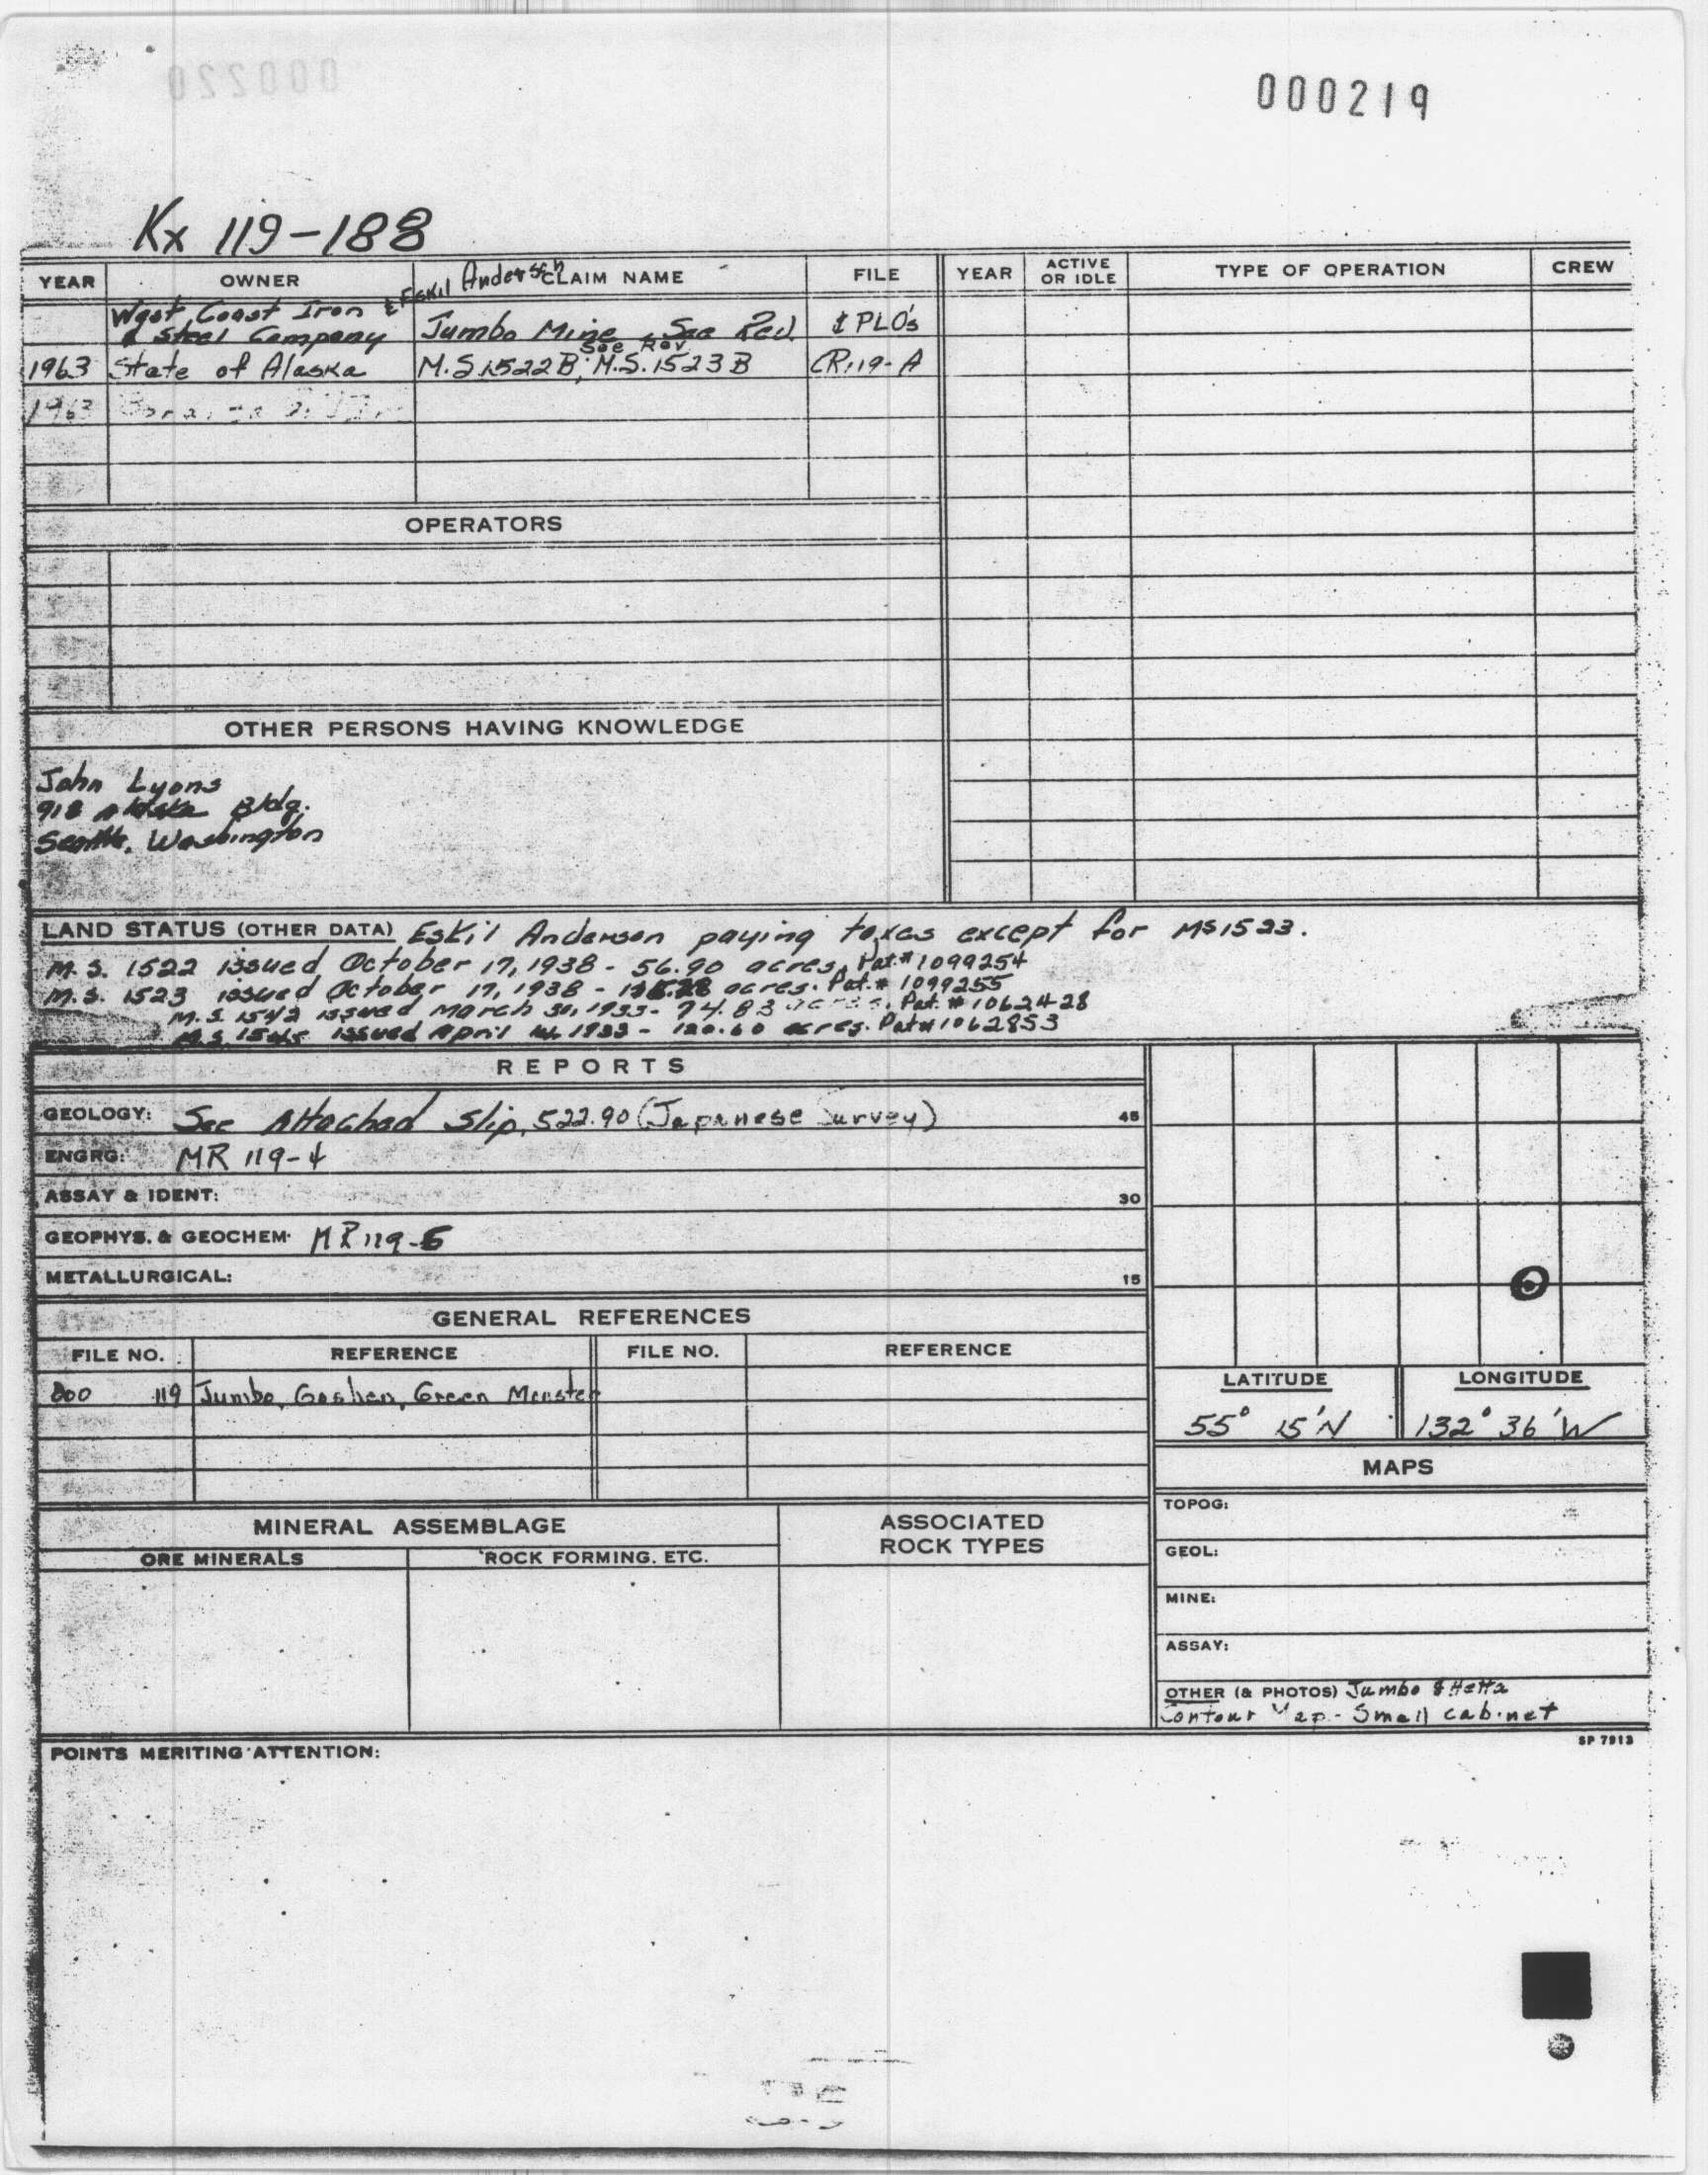 000220
000219
Kx 119-188
YEAR OWNER CLAIM NAME FILE YEAR ACTIVE OR IDLE TYPE OF OPERATION CREW
& Eskil Anderson
West Coast Iron
& Steel Company Jumbo Mine, See Red. & PLO's
See Rev
1963 State of Alaska M.S. 1522B; M.S. 1523B CR119-A
1963
OPERATORS
OTHER PERSONS HAVING KNOWLEDGE
John Lyons
918 Alaska Bldg.
Seattle, Washington
LAND STATUS (OTHER DATA) Eskil Anderson paying taxes except for MS1523.
M.S. 1522 issued October 17, 1938 - 56.90 acres, Pat.# 1099254
M.S. 1523 issued October 17, 1938 - acres. Pat.# 1099255
M.S. 1542 issued March 30, 1933 - 74.83 acres, Pat.# 1062428
M.S. issued April 1933 - 120.60 acres. Pat# 1062853
REPORTS
GEOLOGY: See Attached Slip, 522.90 (Japanese Survey) 45
ENGRG: MR 119-4
ASSAY & IDENT: 30
GEOPHYS. & GEOCHEM. MR 119-5
METALLURGICAL: 15
GENERAL REFERENCES
FILE NO. REFERENCE FILE NO. REFERENCE
800 119 Jumbo, Goshen, Green Monster
LATITUDE LONGITUDE
55° 15'N 132° 36'W
MAPS
TOPOG:
GEOL:
MINE:
ASSAY:
OTHER (& PHOTOS) Jumbo & Hetta
Contour Map - Small cabinet
MINERAL ASSEMBLAGE ASSOCIATED ROCK TYPES
ORE MINERALS ROCK FORMING, ETC.
SP 7913
POINTS MERITING ATTENTION: